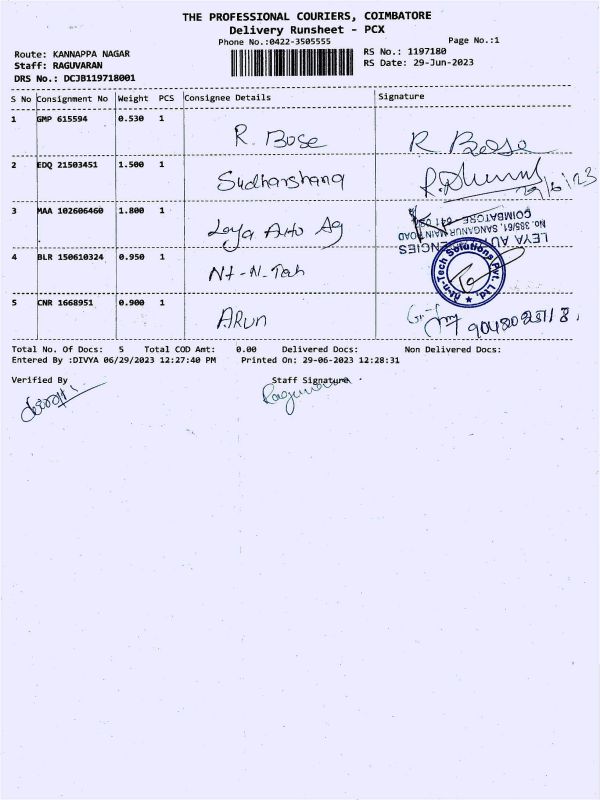 THE PROFESSIONAL COURIERS, COIMBATORE
Delivery Runsheet - PCX
Phone No.:0422-3505555
Page No.:1
Route: KANNAPPA NAGAR
RS No.: 1197180
Staff: RAGUVARAN
RS Date: 29-Jun-2023
DRS No.: DCJB119718001
S No Consignment No Weight PCS Consignee Details Signature
1 GMP 615594 0.530 1 R. Bose R Bose
2 EDQ 21503451 1.500 1 Sudharshana 29/6/23
3 MAA 102606460 1.800 1 Leya Auto Ag
LEYA AU ENCIES
No. 385/61, SANGANUR MAIN ROAD
COIMBATORE - 641
4 BLR 150610324 0.950 1 Nt-N-Tech
-n-Tech Solutions Pvt. Ltd.
5 CNR 1668951 0.900 1 Arun
Total No. Of Docs: 5 Total COD Amt: 0.00 Delivered Docs: Non Delivered Docs:
Entered By :DIVYA 06/29/2023 12:27:40 PM Printed On: 29-06-2023 12:28:31
Verified By Staff Signature
Raguvaran